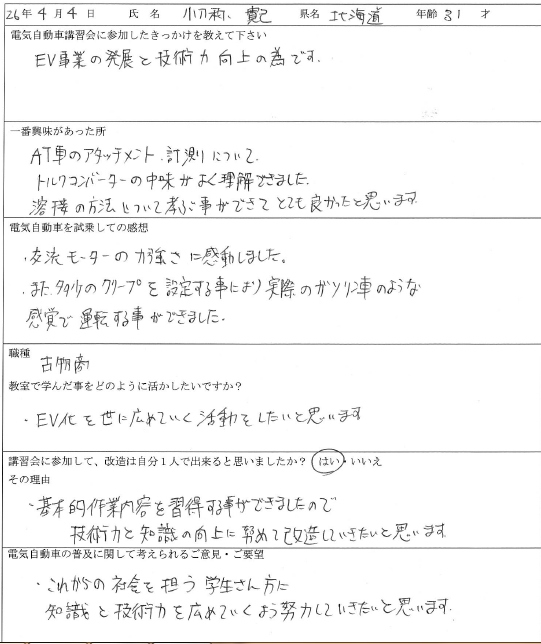 26年 4月 4日 氏名 貴己 県名 北海道 年齢 31 才
電気自動車講習会に参加したきっかけを教えて下さい
EV事業の発展と技術力向上の為です。
一番興味があった所
AT車のアタッチメント、計測について。
トルクコンバーターの中味がよく理解できました。
溶接の方法について学ぶ事ができてとても良かったと思います。
電気自動車を試乗しての感想
・交流モーターの力強さに感動しました。
・また、多少のクリープを設定する事により実際のガソリン車のような
感覚で運転する事ができました。
職種 古物商
教室で学んだ事をどのように活かしたいですか？
・EV化を世に広めていく活動をしたいと思います
講習会に参加して、改造は自分1人で出来ると思いましたか？ はい・いいえ
その理由
・基本的作業内容を習得する事ができましたので
技術力と知識の向上に努めて改造していきたいと思います。
電気自動車の普及に関して考えられるご意見・ご要望
・これからの社会を担う学生さん方に
知識と技術力を広めていくよう努力していきたいと思います。